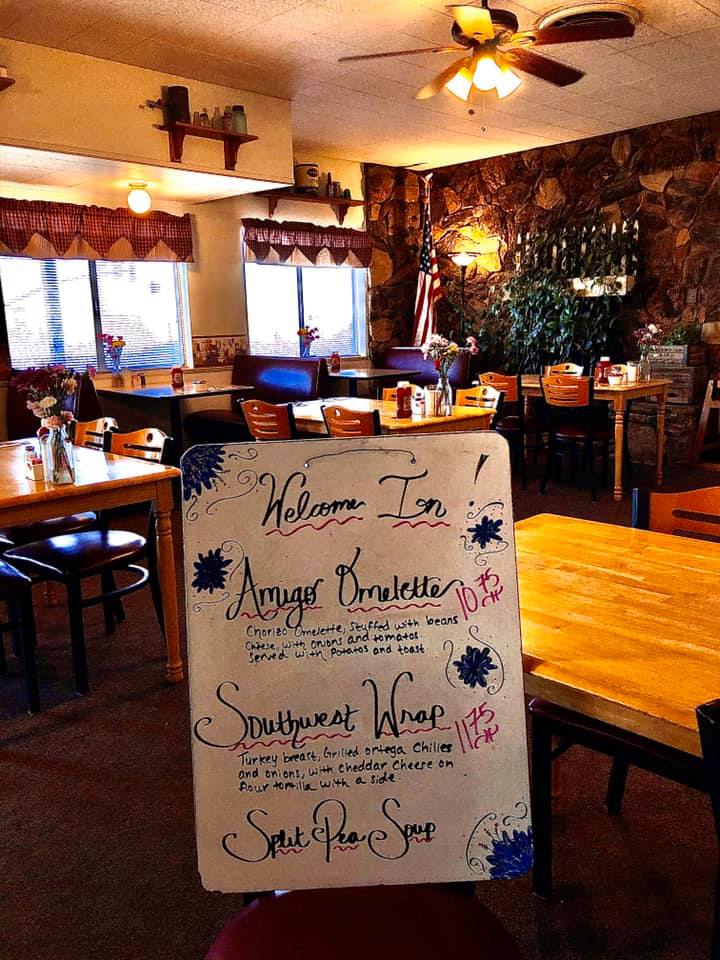 Welcome In!
Amigo Omelette 10.75
Chorizo Omelette, stuffed with beans
cheese, with onions and tomatos.
Served with Potatos and toast.
Southwest Wrap 11.75
Turkey breast, Grilled ortega chilies
and onions, with cheddar cheese on
flour tortilla with a side.
Split Pea Soup